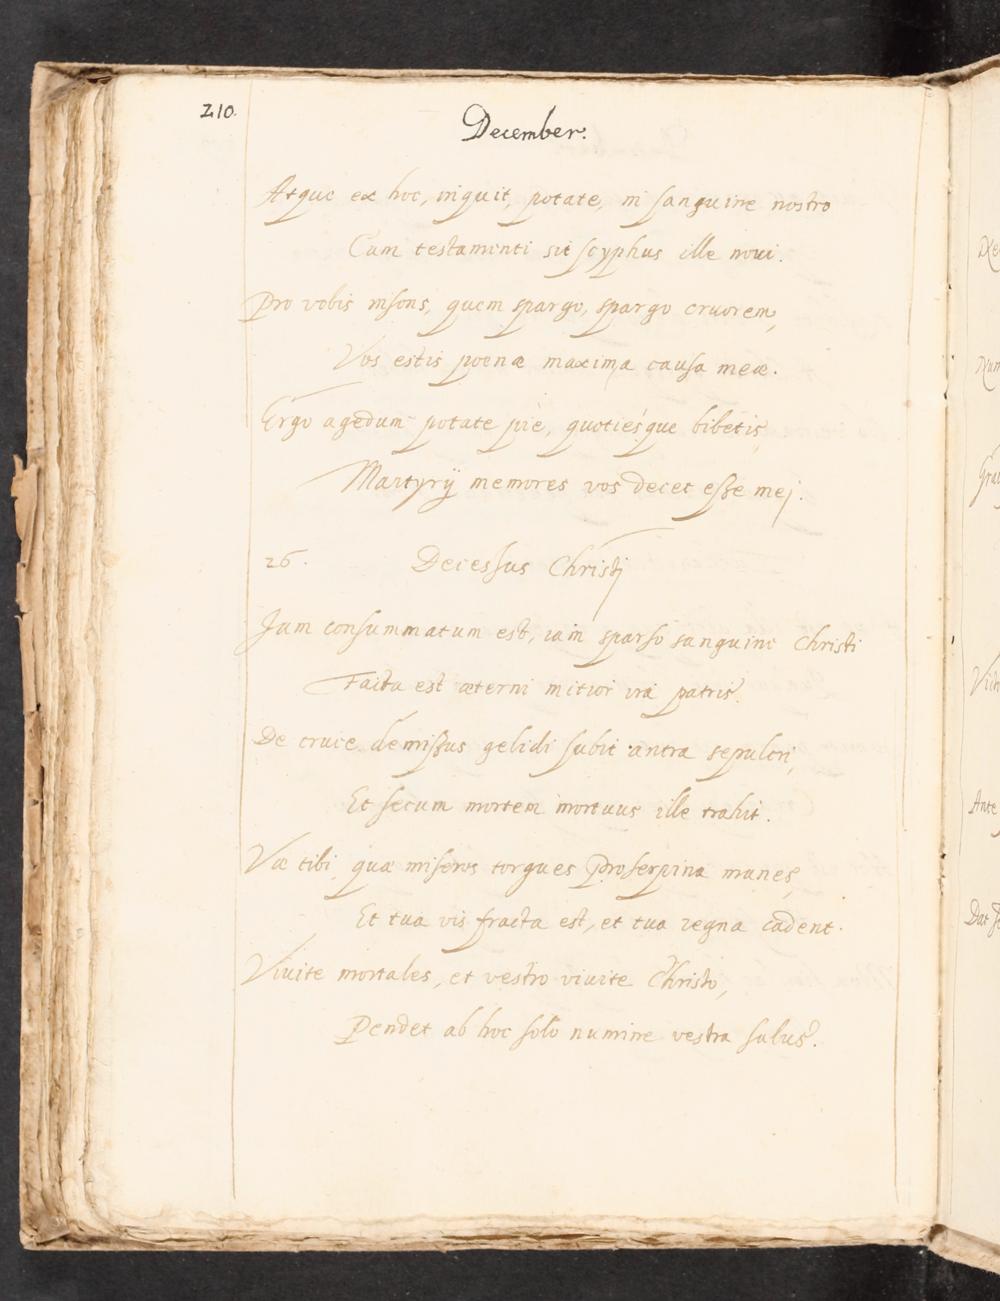 210.
December.
Atque ex hoc, inquit, potate, in sanguine nostro
Cum testamenti sit scyphus ille noui.
Pro vobis insons, quem spargo, spargo cruorem,
Vos estis poenæ maxima causa meæ.
Ergo agedum potate pie, quotiésque bibetis,
Martyrij memores vos decet esse mej.
26. Decessus Christj
Jam consummatum est, iam sparso sanguine Christi
Facta est æterni mitior ira patris.
De cruce demissus gelidi subit antra sepulcri,
Et secum mortem mortuus ille trahit.
Væ tibi quæ miseros torques Proserpina manes,
Et tua vis fracta est, et tua regna cadent.
Viuite mortales, et vestro viuite Christo,
Pendet ab hoc solo numine vestra salus.